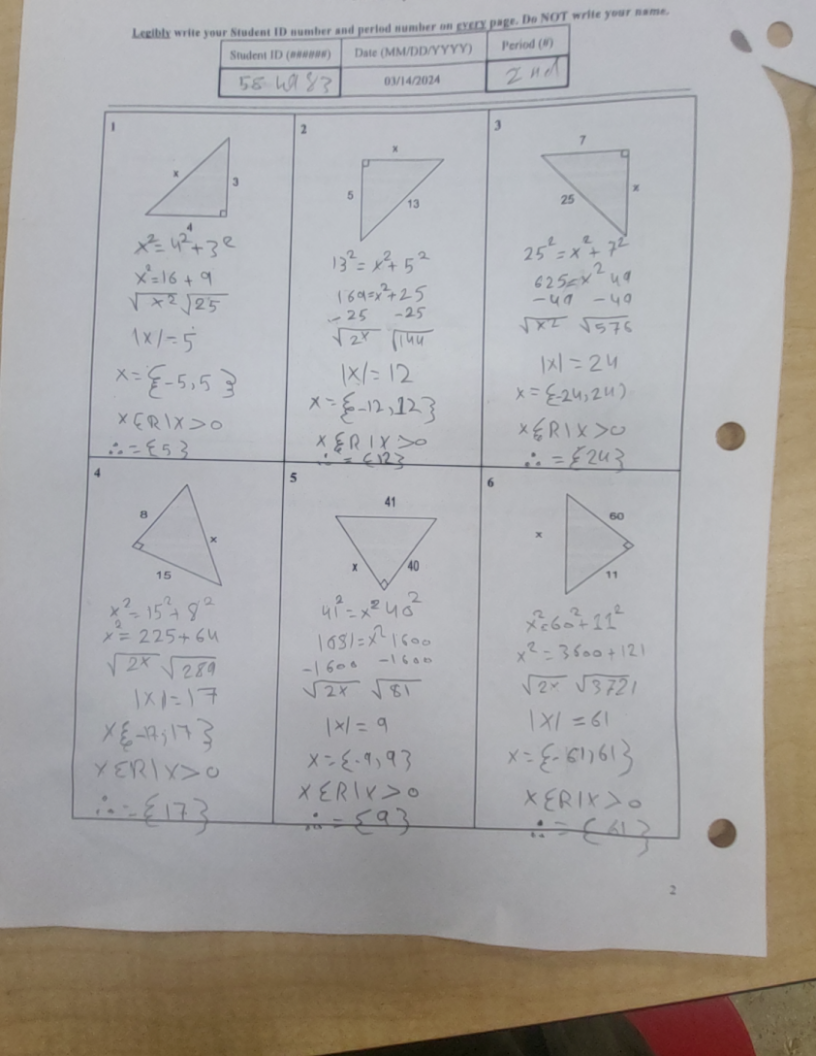 Legibly write your Student ID number and period number on every page. Do NOT write your name.
Student ID (######) Date (MM/DD/YYYY) Period (#)
584983 03/14/2024 2nd
1
x
3
4
x²=4²+3²
x²=16+9
√x² √25
|x|=5
x={-5,5}
xƐR|x>0
∴={5}
2
x
5
13
13²=x²+5²
169=x²+25
-25 -25
√2x √144
|x|=12
x={-12,12}
xƐR|x>0
∴={12}
3
7
25
x
25²=x²+7²
625=x² 49
-49 -49
√x² √576
|x|=24
x={-24,24}
xƐR|x>0
∴={24}
4
8
x
15
x²=15²+8²
x²=225+64
√2x √289
|x|=17
x{-17,17}
xƐR|x>0
∴={17}
5
41
x
40
41²=x² 40²
1681=x² 1600
-1600 -1600
√2x √81
|x|=9
x={-9,9}
xƐR|x>0
∴={9}
6
60
x
11
x²=60²+11²
x²=3600+121
√2x √3721
|x|=61
x={-61,61}
xƐR|x>0
∴={61}
2